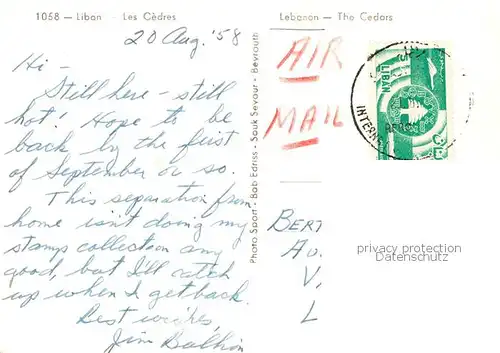 1058 — Liban - Les Cèdres
Lebanon — The Cedars
20 Aug. '58
Hi -
Still here - still
hot! Hope to be
back by the first
of September or so.
This separation from
home isn't doing my
stamps collection any
good, but I'll catch
up when I get back.
Best wishes,
Jim
Photo Sport - Bab Edriss - Souk Seyour - Beyrouth
AIR
MAIL
LIBAN
BERT
AV
V,
L
privacy protection
Datenschutz